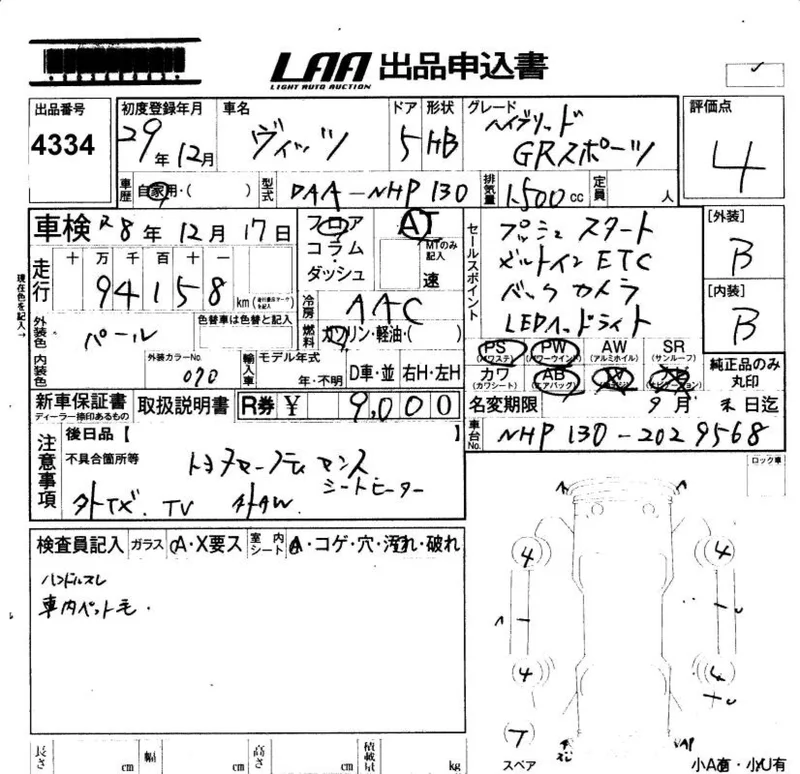 LAA 出品申込書
LIGHT AUTO AUCTION
出品番号
4334
初度登録年月
29年12月
車名
ヴィッツ
ドア
5
形状
HB
グレード
ハイブリッド
GRスポーツ
評価点
4
車歴 自家用・( )
型式 DAA-NHP130
排気量 1.500cc
定員 人
車検 R8年12月17日
走行
十万千百十一
94158km
(走行要求マークを記入)
現在色を記入→
フロア
コラム
・
ダッシュ
AT
MTのみ記入
速
セールスポイント
プッシュスタート
ビルトインETC
バックカメラ
LEDヘッドライト
[外装]
B
[内装]
B
外装色 パール
色替車は色替と記入
冷房 AAC
燃料 ガソリン・軽油・( )
内装色
外装カラーNo.
070
輸入車
モデル年式
年・不明
D車・並
右H・左H
PS
(パワステ)
PW
(パワーウインド)
AW
(アルミホイル)
SR
(サンルーフ)
カワ
(カワシート)
AB
(エアバッグ)
純正品のみ
丸印
新車保証書
ディーラー捺印あるもの
取扱説明書
R券 ¥ 9,000
名変期限 9月末日迄
車台No. NHP130-2029568
注意事項
後日品【 】
不具合箇所等
トヨタセーフティセンス
シートヒーター
外TX.TV 外AW
ロック車
検査員記入
ガラス A・X要ス
室内シート A・コゲ・穴・汚れ・破れ
ハンドルスレ
車内ペット毛.
4
4
4
4
T
スペア
長さ cm
幅 cm
高さ cm
積載量 kg
小A有・小U有